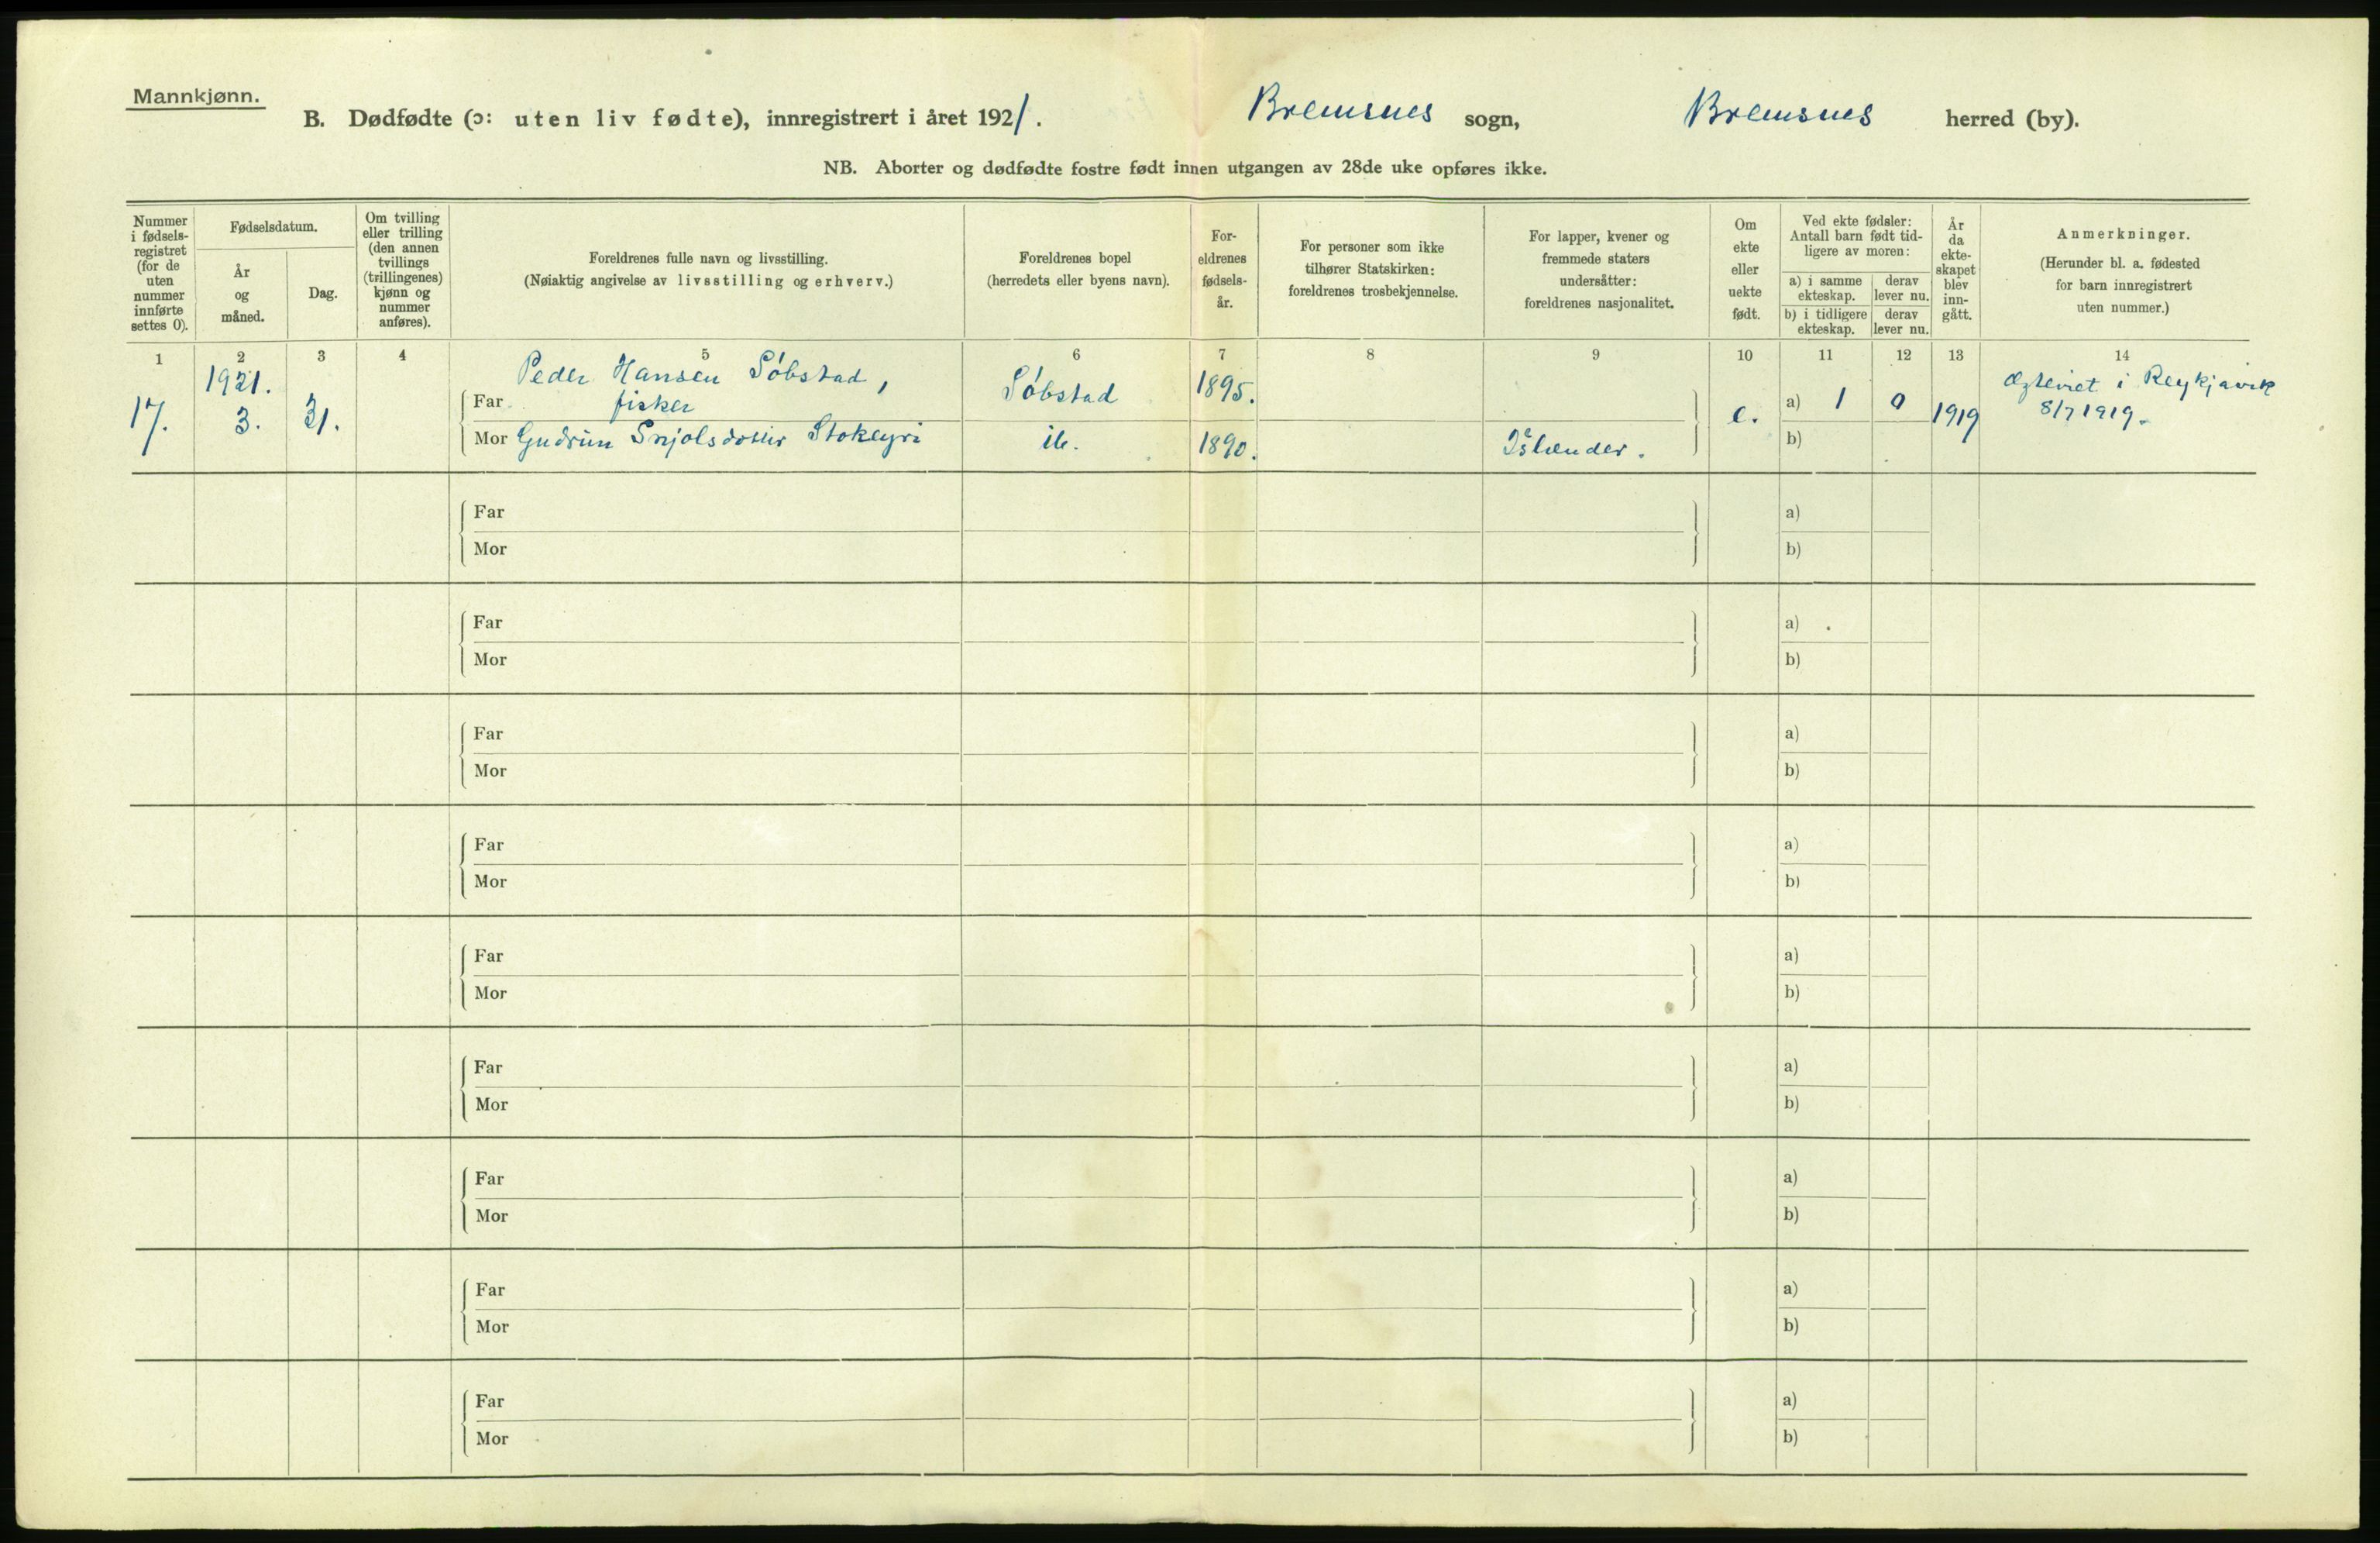 Mannkjønn.
B. Dødfødte (ɔ: uten liv fødte), innregistrert i året 1921. Bremsnes sogn, Bremsnes herred (by).
NB. Aborter og dødfødte fostre født innen utgangen av 28de uke opføres ikke.
Nummer
i fødsels-
registret
(for de
uten
nummer
innførte
settes 0).
Fødselsdatum.
År
og
måned.
Dag.
Om tvilling
eller trilling
(den annen
tvillings
(trillingenes)
kjønn og
nummer
anføres).
Foreldrenes fulle navn og livsstilling.
(Nøiaktig angivelse av livsstilling og erhverv.)
Foreldrenes bopel
(herredets eller byens navn).
For-
eldrenes
fødsels-
år.
For personer som ikke
tilhører Statskirken:
foreldrenes trosbekjennelse.
For lapper, kvener og
fremmede staters
undersåtter:
foreldrenes nasjonalitet.
Om
ekte
eller
uekte
født.
Ved ekte fødsler:
Antall barn født tid-
ligere av moren:
a) i samme
ekteskap.
derav
lever nu.
b) i tidligere
ekteskap.
derav
lever nu.
År
da
ekte-
skapet
blev
inn-
gått.
Anmerkninger.
(Herunder bl. a. fødested
for barn innregistrert
uten nummer.)
1 2 3 4 5 6 7 8 9 10 11 12 13 14
17.
1921.
3.
31.
Peder Hansen Søbstad,
Far fisker
Søbstad
1895.
Mor Gudrun Snjolsdottir Stokeyri
ib.
1890.
Islænder.
e.
a) 1 0
b)
1919
Ægteviet i Reykjavik
8/7 1919.
Far a)
Mor b)
Far a)
Mor b)
Far a)
Mor b)
Far a)
Mor b)
Far a)
Mor b)
Far a)
Mor b)
Far a)
Mor b)
Far a)
Mor b)
Far a)
Mor b)